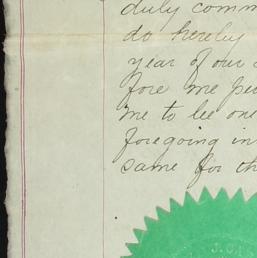 duly comm
do hereby
year of our
fore me pe
me to be one
foregoing in
same for th
J.C.